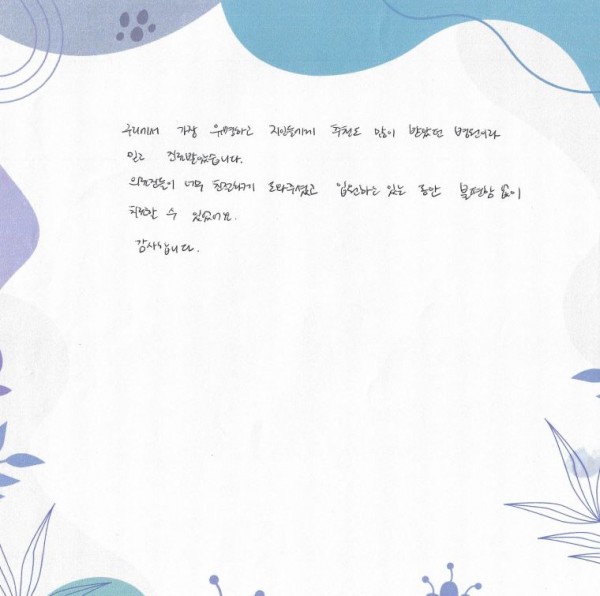 구리에서 가장 유명하고 지인들에게 추천도 많이 받았던 병원이라
믿고 진료받았습니다.
의료진들이 너무 친절하게 도와주셨고 입원하는 있는 동안 불편함 없이
치료할 수 있었어요.
감사합니다.